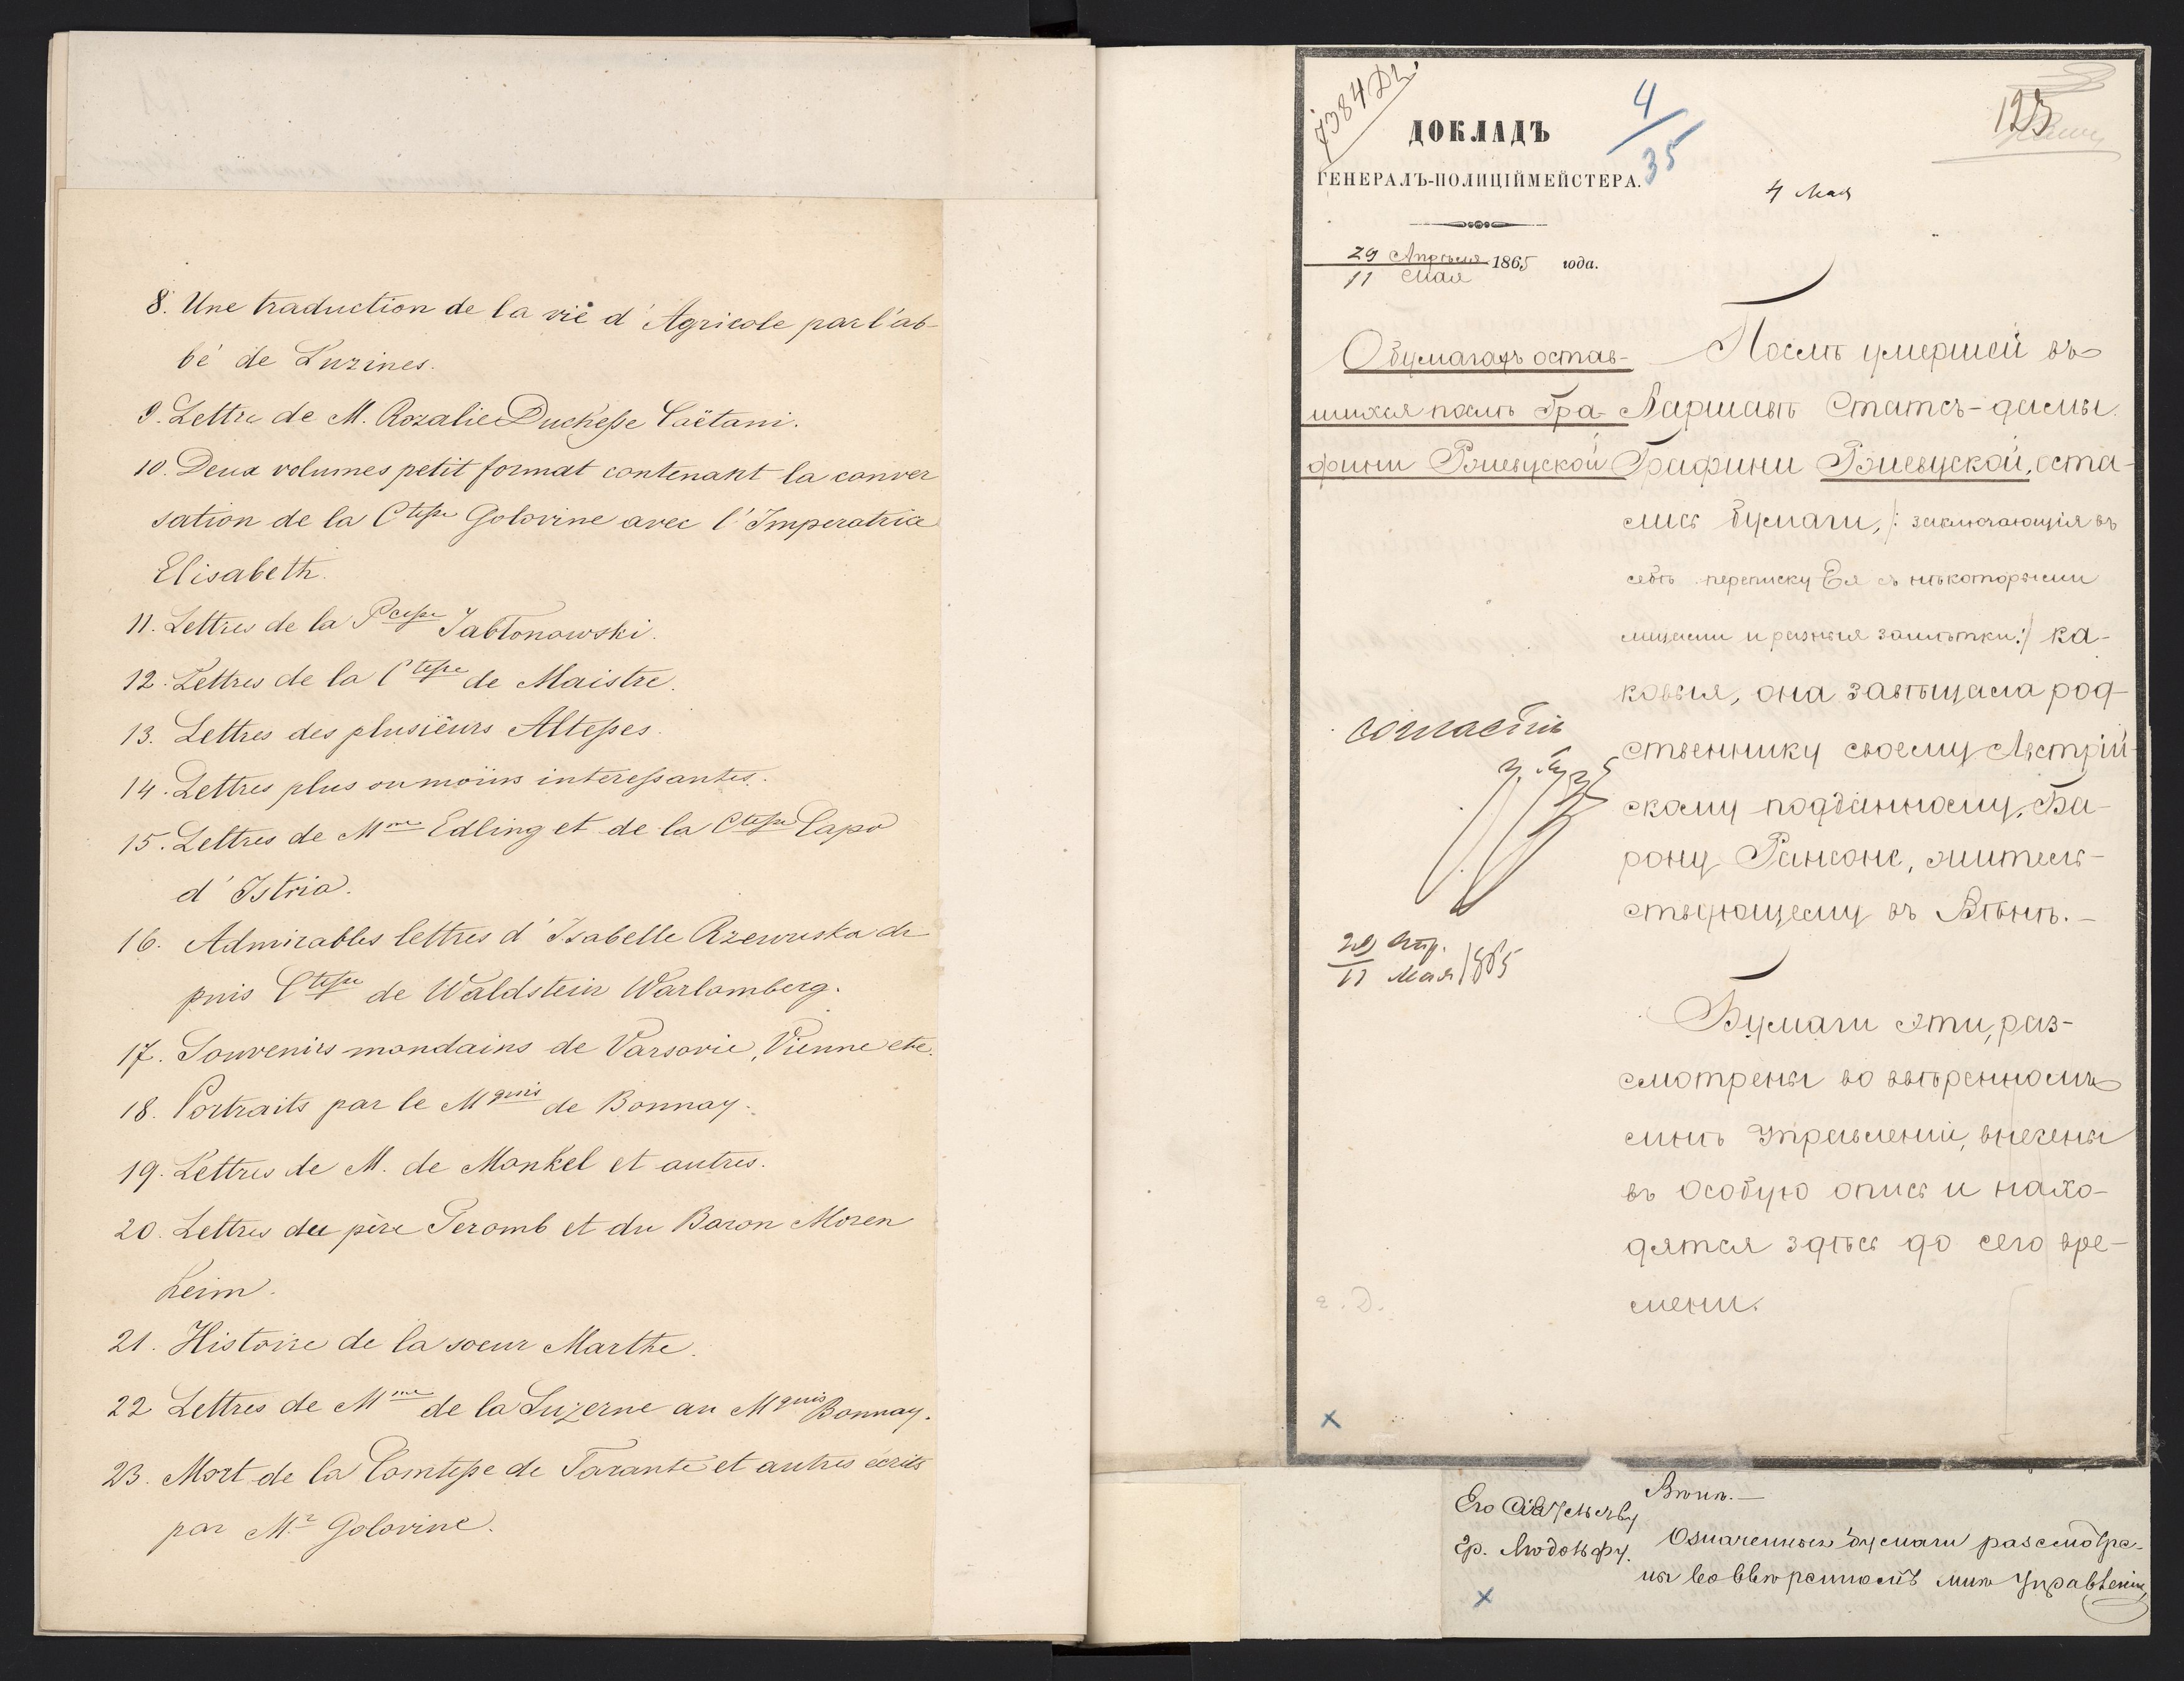 8. Une traduction de la vie d'Agricole par l'ab-
bé de Luzines.
9. Lettre de M. Rozalie Duchesse Caëtani.
10. Deux volumes petit format contenant la conver
sation de la Ctesse Golovine avec l'Imperatrice
Elisabeth.
11. Lettres de la Pcesse Jabłonowski.
12. Lettres de la Ctesse de Maistre.
13. Lettres des plusieurs Altesses.
14. Lettres plus ou moins interessantes.
15. Lettres de Mme Edling et de la Ctesse Capo
d'Istria.
16. Admirables lettres d'Isabelle Rzewuska de
puis Ctesse de Waldstein Warlomberg.
17. Souvenirs mondains de Varsovie, Vienne etc.
18. Portraits par le Mquis de Bonnay.
19. Lettres de M. de Mankel et autres.
20. Lettres du père Geromb et du Baron Moren
heim.
21. Histoire de la soeur Marthe.
22 Lettres de Mme de la Luzerne au Mquis Bonnay.
23. Mort de la Comtesse de Tarante et autres écrits
par Mr Golovine.
7384 Дг.
4
35
123
ДОКЛАДЪ
ГЕНЕРАЛЪ-ПОЛИЦІЙМЕЙСТЕРА.
4 Мая
29 Апрѣля
11 Мая
1865 года.
О бумагахъ остав-
шихся послѣ Гра-
фини Ржевуской
Послѣ умершей въ
Варшавѣ Статсъ-дамы
Графини Ржевуской, оста-
лись бумаги, /: заключающія въ
себѣ переписку Ея съ нѣкоторыми
лицами и разныя замѣтки :/ ка-
ковыя, она завѣщала род-
ственнику своему Австрій-
скому подданному, Ба-
рону Рансоне, житель-
ствующему въ Вѣнѣ. —
согласенъ
29 Апр.
11 Мая 1865
Бумаги эти, раз-
смотрены во ввѣренномъ
мнѣ Управленіи, внесены
въ особую опись и нахо-
дятся здѣсь до сего вре-
мени.
Его Сіятельству
Гр. Людольфу.
Вѣнѣ. —
Означенныя бумаги разсмотре-
ны во ввѣренномъ мнѣ Управленіи,